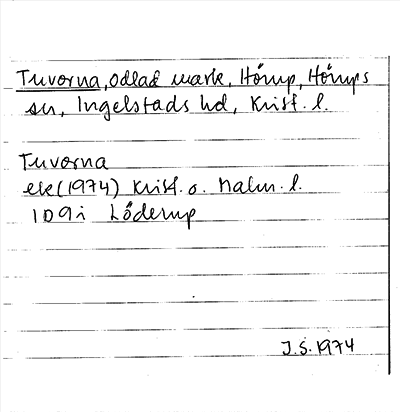 Tuvorna, odlad mark, Hörup, Hörups
sn, Ingelstads hd, Krist. l.
Tuvorna
ek (1974) Krist. o. Malm. l.
1D9i Löderup
J.S. 1974